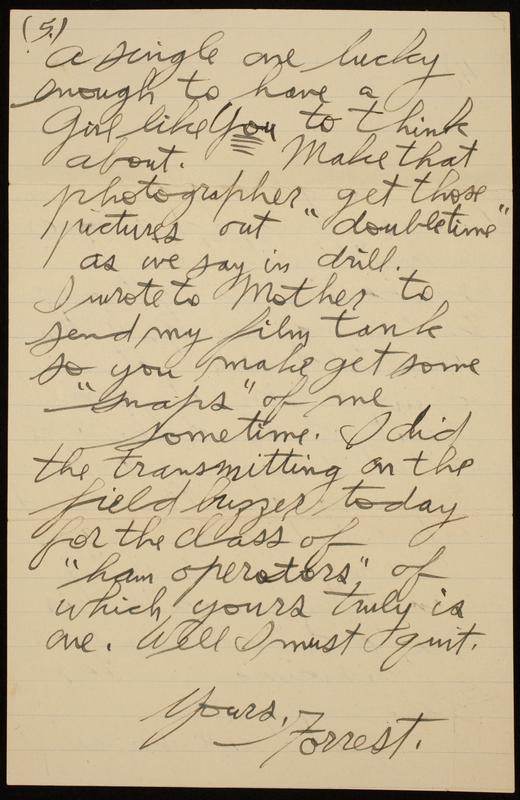 (5.)
a single one lucky
enough to have a
Girl like You to think
about. Make that
photographer get those
pictures out "doubletime"
as we say in drill.
I wrote to Mother to
send my film tank
so you make get some
"snaps" of me
sometime. I did
the transmitting on the
field buzzer today
for the class of
"ham operators" of
which yours truly is
one. Well I must quit.
Yours,
Forrest.